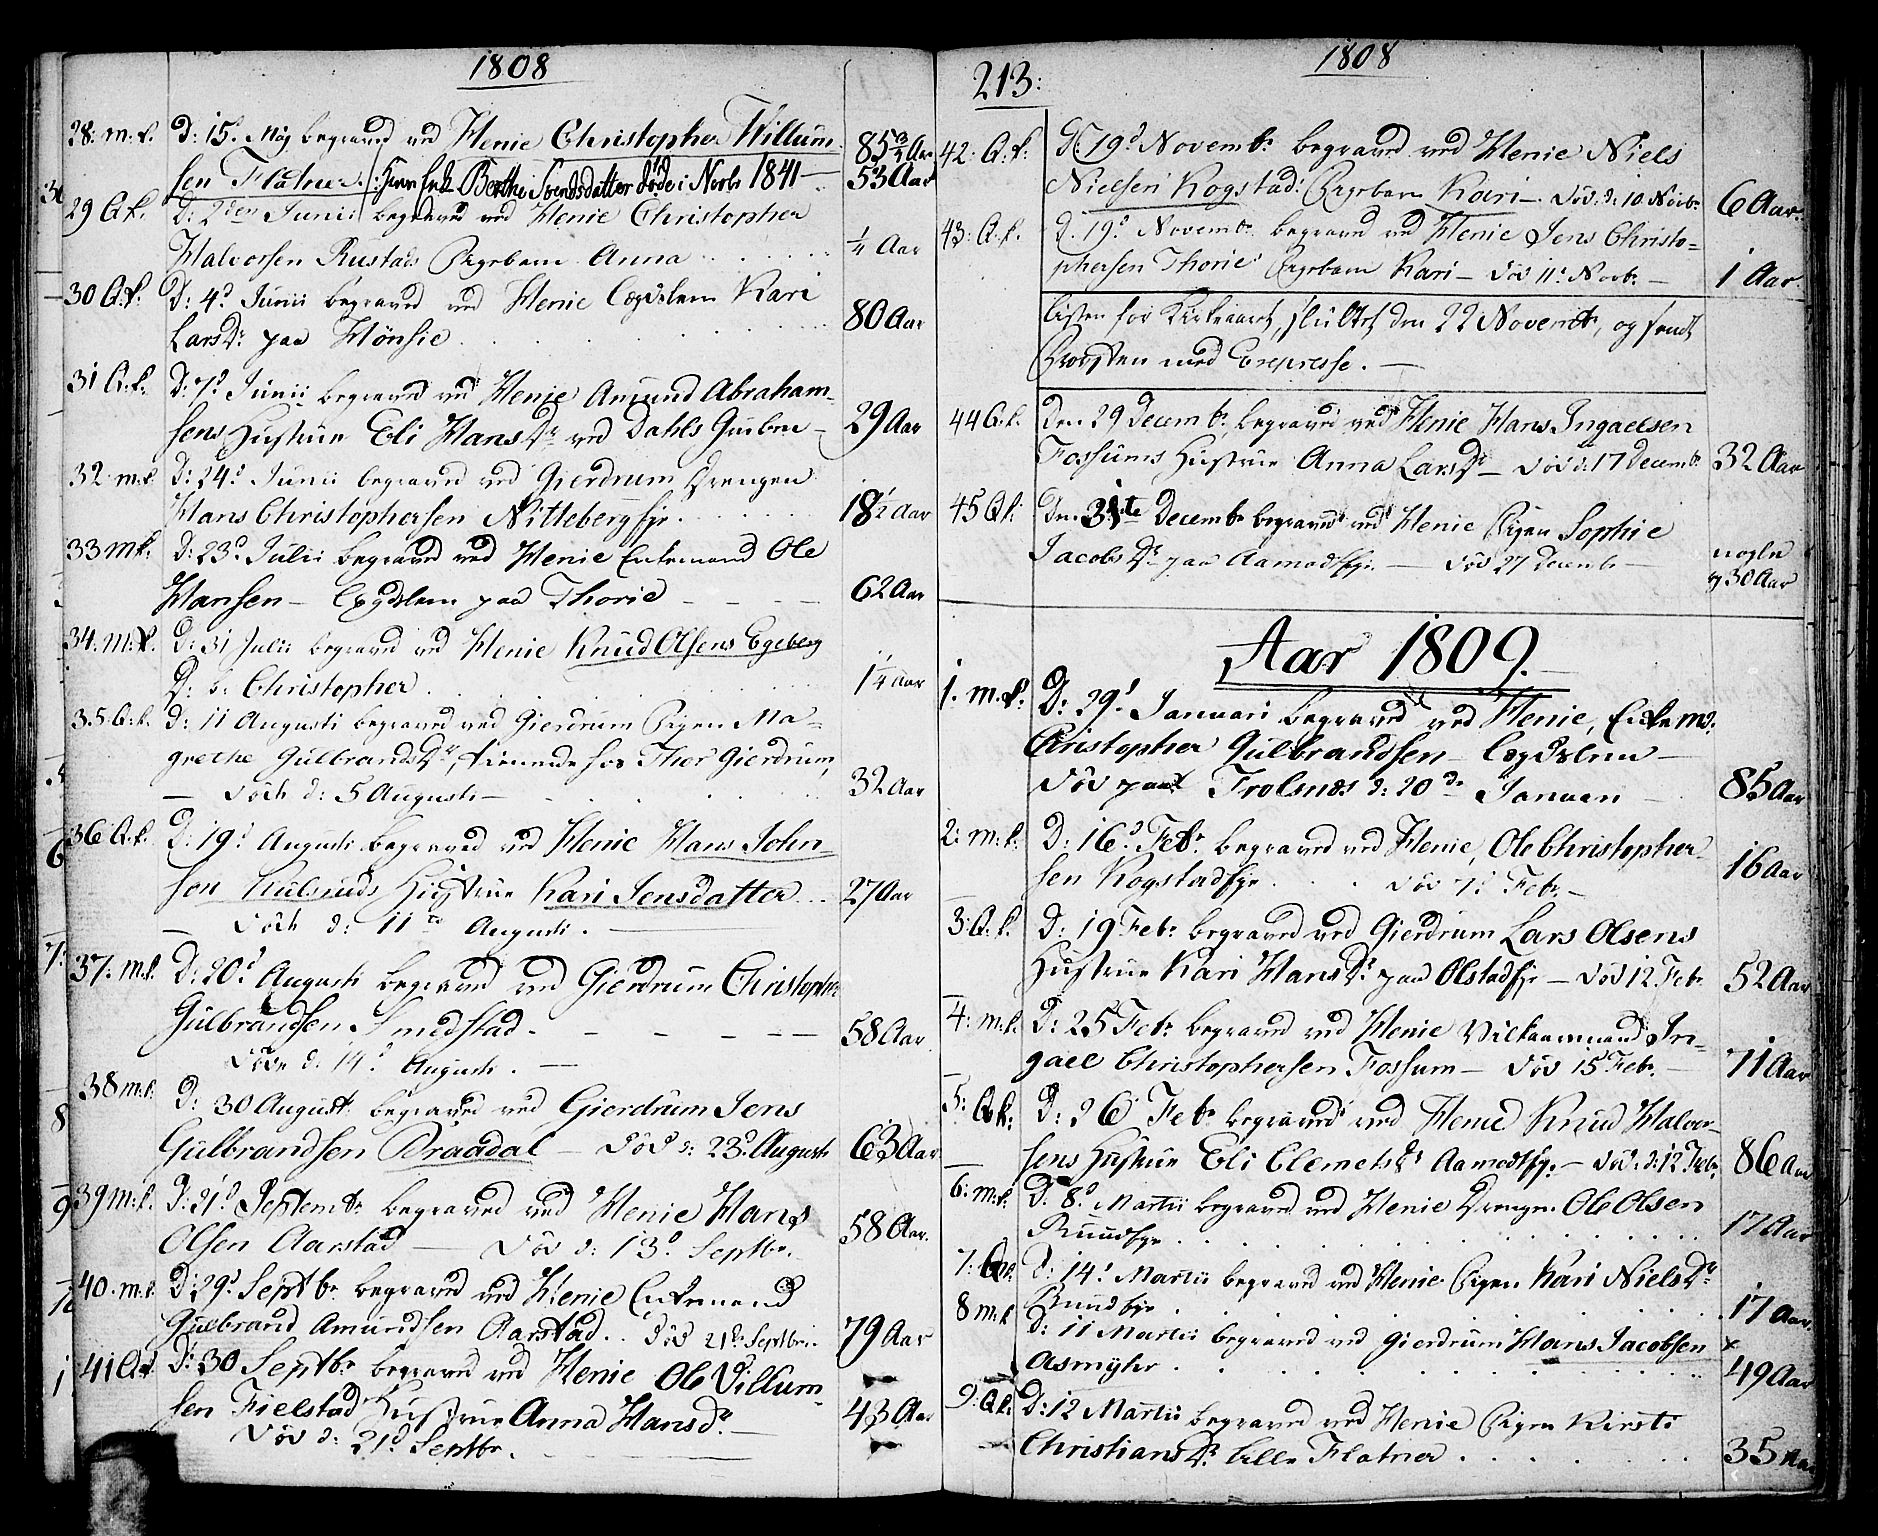 1808
28: m. k. D: 15. Maj begraved ved Henie Christopher Willum
sen Flatner. /: Hans Enk. Berthe Svendsdatter døde i Novbr 1841 — 53 Aar
29 Q. k. D: 2den Junii begraved ved Henie Christopher
Halvorsen Rustads Pigebarn Anna ¼ Aar
30 Q. k. D: 4d Junii begraved ved Henie Lægdslem Kari
Lars Dr paa Hønsie 80 Aar
31 Q. k. D: 7d Junii begraved ved Henie Amund Abraham-
sens Hustrue Eli Hans Dr ved Dahls Gruben 29 Aar
32 m. k. D: 24d Junii begraved ved Gierdrum Drengen
Hans Christophersen Nittebergeje 18½ Aar
33 m k. D: 23d Julii begraved ved Henie Enkemand Ole
Hansen — Lægdslem paa Thorie 62 Aar
34. m. k. D: 31 Julii begraved ved Henie Knud Olsens Egeberg
D: b: Christopher 1¼ Aar
35. Q. k. D: 11 Augusti begraved ved Gierdrum Pigen Ma-
grethe Gulbrands Dr, tienende hos Thor Gierdrum,
— død d: 5 Augusti — 32 Aar
36 Q. k. D: 19d Augusti begraved ved Henie Hans John-
sen Hustrue Kari Jensdatter 27 Aar
— død d: 11te Augusti. —
37. m. k. D: 20d Augusti begraved ved Gierdrum Christopher
Gulbrandsen Smedstad 58 Aar
død d: 14d Augusti. —
38 m. k. D: 30 August begraved ved Gierdrum Jens
Gulbrandsen Braadal — død d: 23d Augusti 63 Aar
39 m. k. D: 21d Septembr begraved ved Henie Hans
Olsen Aarstad — død d: 13d Septbr. 58 Aar.
40. m. k. D: 29d Septbr begraved ved Henie Enkemand
Gulbrand Amundsen Aarstad. død 21d Septbr. 79 Aar
41 Q. k D: 30 Septbr begraved ved Henie Ole Villum-
sen Fielstad Hustrue Anna Hansdr. — 43 Aar
død d: 21d Septbr.
213:
1808
42. Q. k. D. 19d Novembr begraved ved Henie Niels
Nielsen Kogstad: Pigebarn Kari — død. d: 10 Novbr 6 Aar.
43. Q. k. D. 19d Novembr begraved ved Henie Jens Christo-
phersen Thorie Pigebarn Kari — død 11d Novbr — 1 Aar
Listen for Kirkeaaret, sluttet den 22 Novembr, og sendt
Provsten med Expresse. —
44 Q. k. Den 29 Decembr begraved ved Henie Hans Ingaelsen
Fossums Hustrue Anna Lars Dr — død d: 17 Decembr 32 Aar
45 Q k. Den 31te Decembr begraved ved Henie Pigen Sophie
Jacobs Dr paa Aamodteje. — død 27 Decembr — nogle
og 30 Aar
Aar 1809.
1. m. k. D: 29d Januari begraved ved Henie, Enkemd.
Christopher Gulbrandsen — Lægdslem —
død paa Trolsnæs d: 20de Januari 85 Aar
2: m. k. D: 16d Febr begraved ved Henie, Ole Christopher-
sen Kogstadeje død 7d Febr — 16 Aar
3: Q. k. D: 19 Febr begraved ved Gierdrum Lars Olsens
Hustrue Kari Hans Dr paa Olstadeje — død 12 Febr 52 Aar
4: m. k. D: 25 Febr begraved ved Henie Vilkaarmand In-
gael Christophersen Fossum — død 15 Febr. — 71 Aar
5: Q. k: D: 26 Febr begraved ved Henie Knud Halvor-
sens Hustrue Eli Clemets Dr Aamodteje — død. d: 12 Febr. 86 Aar
6: m. k. D: 8d Martii begraved ved Henie Drengen Ole Olsen
Ruudeje 17 Aar
7: Q. k. D: 14d Martii begraved ved Henie Pigen Kari Niels Dr
Ruudeje 17 Aar.
8 m. k D: 11 Martii begraved ved Gierdrum Hans Jacobsen
Asmyhr 49 Aar
9. Q. k. D: 12 Martii begraved ved Henie Pigen Kirsti
Christians Dr Lille Flatner 35 Aar